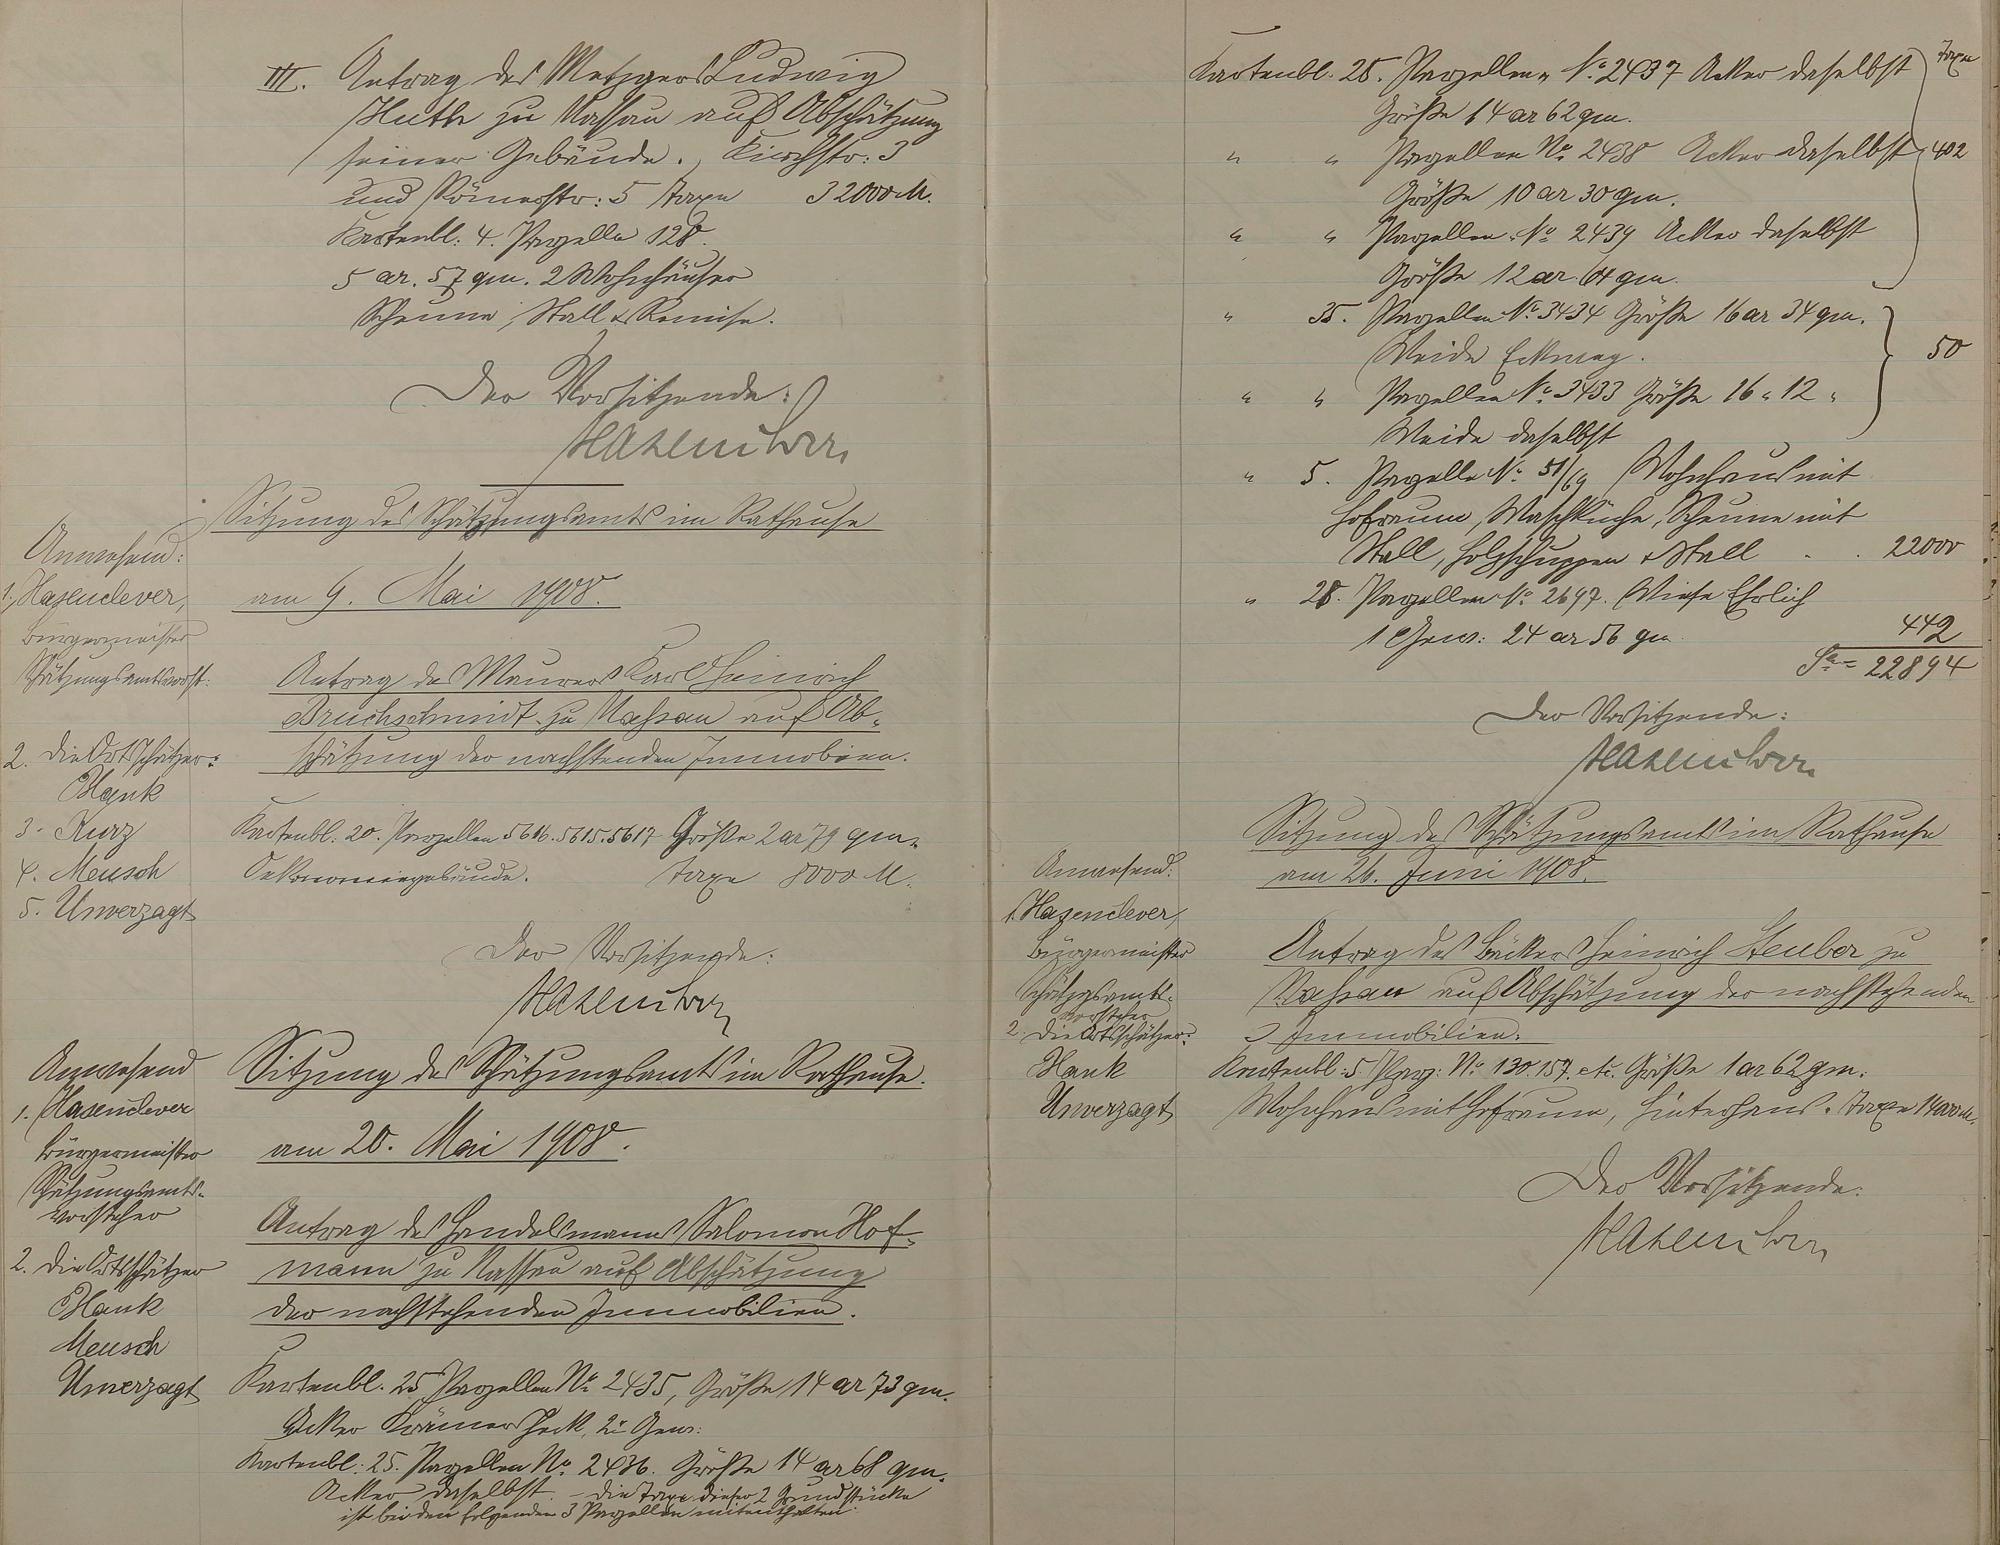 III. Antrag des Metzgers Ludwig
Huth zu Nassau auf Abschätzung
seiner Gebäude. Kirchstr: 3
und Römerstr: 5 Taxe 32000 M.
Kartenbl: 4. Parzelle 128.
5 ar. 57 qm. 2 Wohnhäuser
Scheune, Stall & Remise.
Der Vorsitzende:
Hasenclever
Sitzung des Schätzungsamts im Rathause
am 9. Mai 1908.
Anwesend:
1. Hasenclever,
Bürgermeister
Schätzungsamtsvorst:
2. die Ortsschätzer:
Hank
3. Kurz
4. Meusch
5. Unverzagt
Antrag des Maurers Karl Heinrich
Bruchschmidt zu Nassau auf Ab-
schätzung der nachstenden Immobien.
Kartenbl. 20. Parzellen 5616. 5615. 5617 Größe 2 ar 79 qm.
Oekonomiegebäude. Taxe 8000 M.
Der Vorsitzende:
Hasenclever
Sitzung des Schätzungsamts im Rathause.
am 20. Mai 1908.
Anwesend
1. Hasenclever
Bürgermeister
Schätzungsamts-
vorsteher
2. die Ortsschätzer
Hank
Meusch
Unverzagt
Antrag des Handelsmanns Salomon Hof-
mann zu Nassau auf Abschätzung
der nachstehenden Immobilien.
Kartenbl. 25 Parzellen No 2435, Größe 14 ar 73 qm.
Acker Krämersheck, 2r Gew:
Kartenbl: 25. Parzellen No. 2436. Größe 14 ar 68 qm.
Acker daselbst. - die Taxe dieser 2 Grundstücke
ist bei den folgenden 3 Parzellen mitenthalten
Kartenbl. 25. Parzellen No. 2437 Acker daselbst Taxe
Größe 14 ar 62 qm.
" " Parzellen No. 2438 Acker daselbst 402
Größe 10 ar 30 qm.
" " Parzellen No 2439 Acker daselbst
Größe 12 ar 64 qm.
" 35. Parzellen No. 3434 Größe 16 ar 34 qm.
Weide Eckweg. 50
" " Parzellen No. 3433 Größe 16 " 12 "
Weide daselbst
" 5. Parzelle No. 51/69 Wohnhaus mit
Hofraum, Waschküche, Scheune mit
Stall, Holzschuppen & Stall . . 22000
" 28. Parzellen No. 2697. Wiese Ehrlich
1 Gew: 24 ar 56 qm 442
Sa = 22894
Der Vorsitzende:
Hasenclever
Sitzung des Schätzungsamts im Rathause
am 26. Juni 1908.
Anwesend:
1. Hasenclever,
Bürgermeister
Schätzgsamts-
vorsteher
2. die Ortsschätzer:
Hank
Unverzagt
Antrag des Bäckers Heinrich Steuber zu
Nassau auf Abschätzung der nachstehenden
Immobilien:
Kartenbl: 5. Parz: No. 130. 157. etc. Größe 1 ar 62 qm.
Wohnhaus mit Hofraum, Hinterhaus. Taxe 14000 M.
Der Vorsitzende:
Hasenclever